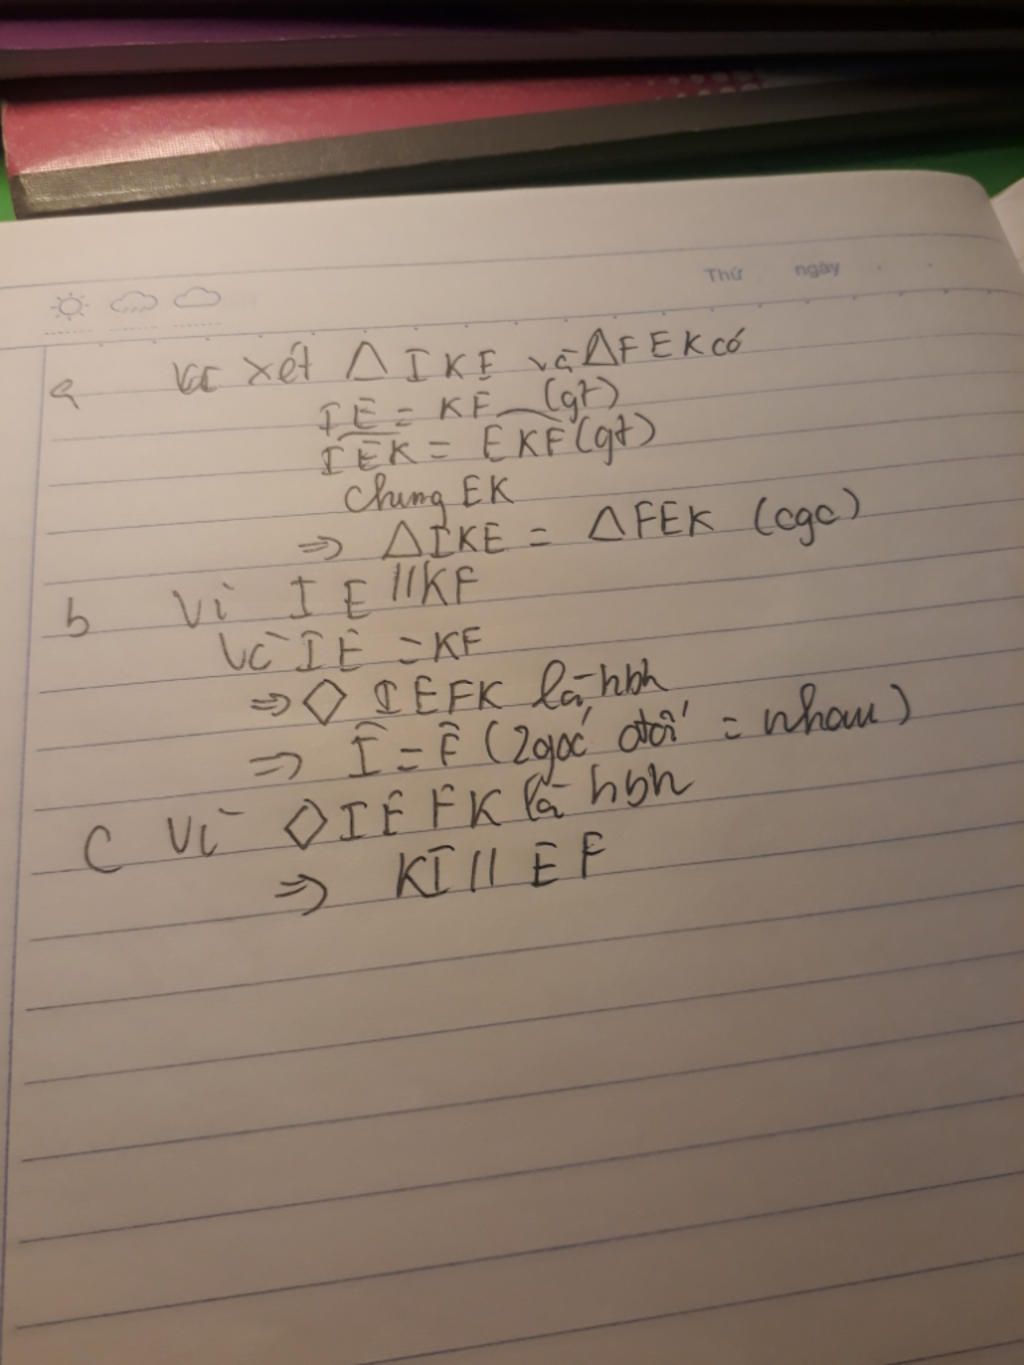 Thứ ngày
a xét Δ IKE và Δ FEK có
IE = KF (gt)
IEK = EKF (gt)
Chung EK
⇒ Δ IKE = Δ FEK (cgc)
b Vì IE // KF
Và IE = KF
⇒ ◇ IEFK là hbh
⇒ Î = F̂ (2 góc đối = nhau)
C Vì ◇ IEFK là hbh
⇒ KI // EF